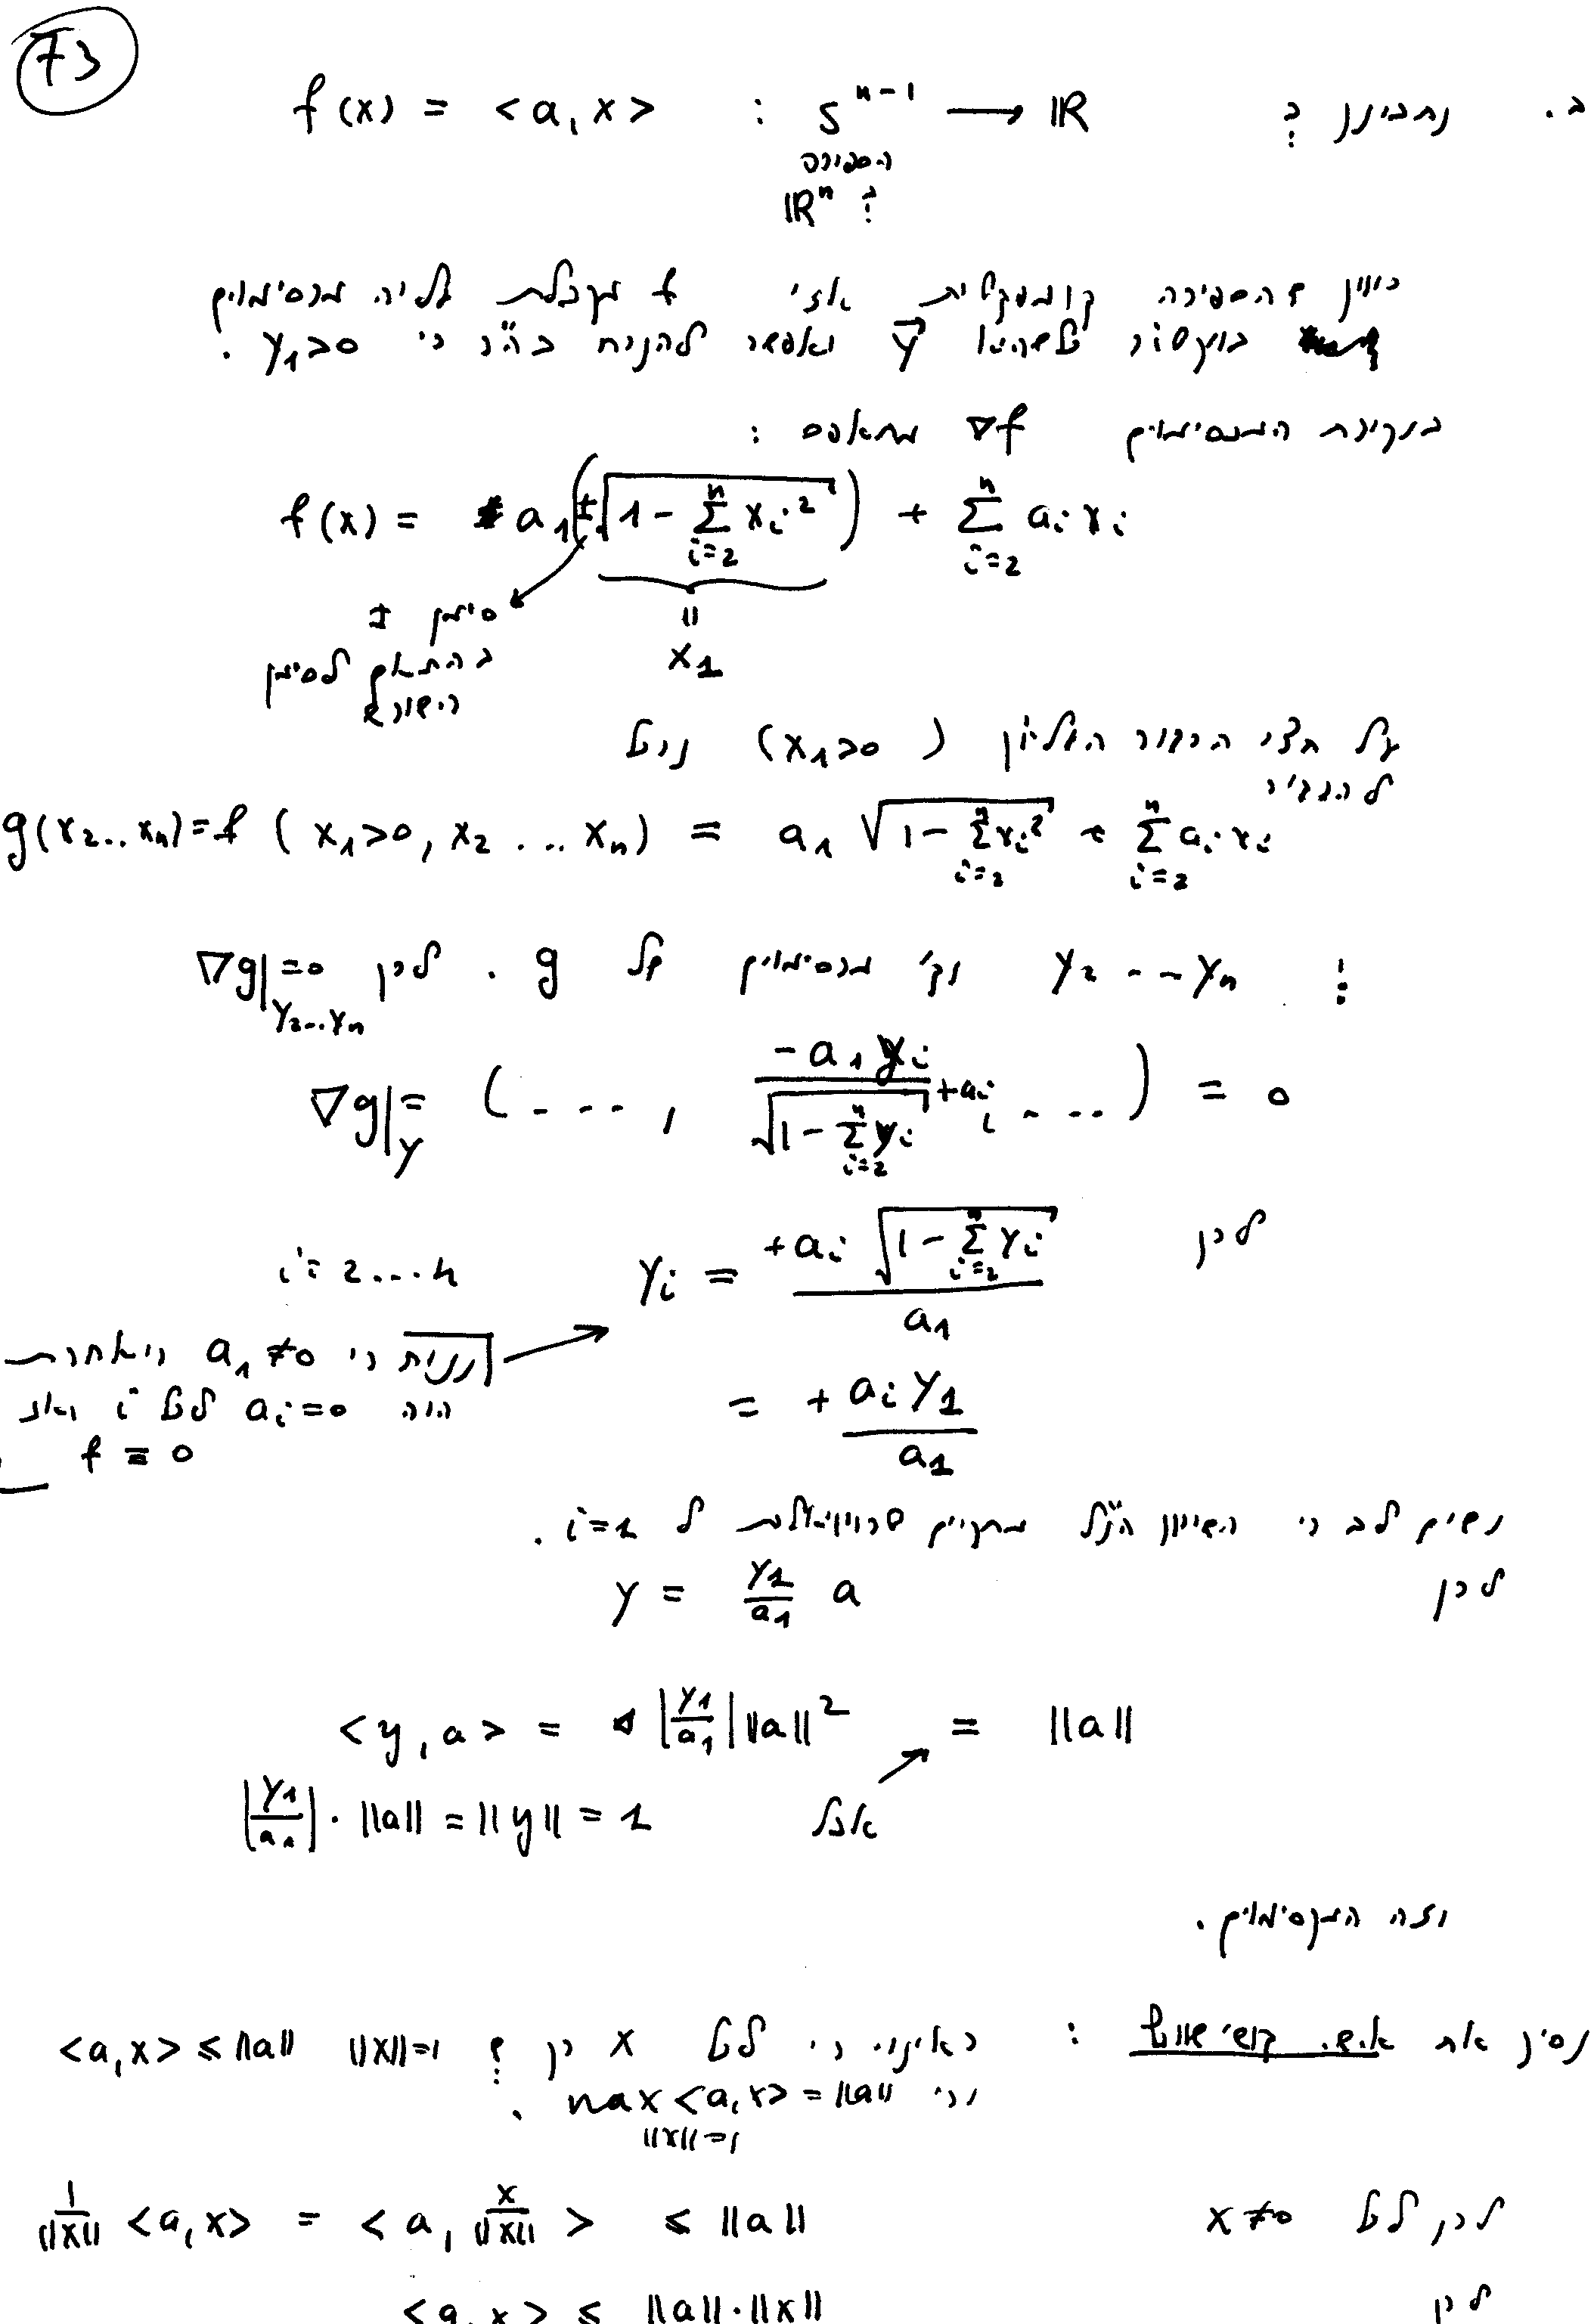 73
ב. נתבונן ב: f(x) = <a,x> : S^{n-1} → ℝ
הספירה
ב: ℝ^n
כיוון שהספירה קומפקטית אזי f מקבלת עליה מכסימום
בוקטור כלשהו y⃗ ואפשר להניח בה"כ כי y₁>0.
בנקודת המכסימום ∇f מתאפס:
f(x) = a₁(±√(1 - Σ_{i=2}^{n} x_i²)) + Σ_{i=2}^{n} a_i x_i
סימן ± = x₁
בהתאם לסימן
השורש
על חצי הכדור העליון (x₁>0) נוכל
להגדיר
g(x₂..x_n) = f(x₁>0, x₂...x_n) = a₁√(1 - Σ_{i=2}^{n} x_i²) + Σ_{i=2}^{n} a_i x_i
: y₂...y_n נק' מכסימום של g. לכן ∇g|_{y₂...y_n} = 0
∇g|_y = (...., -a₁y_i / √(1 - Σ_{i=2}^{n} y_i) + a_i, ....) = 0
לכן y_i = +a_i √(1 - Σ_{i=2}^{n} y_i) / a₁ i=2...n
= + a_i y₁ / a₁
נניח כי a₁≠0 כי אחרת
היה a_i=0 לכל i ואז
f ≡ 0
נשים לב כי השיויון הנ"ל מתקיים טרויויאלית ל i=1.
לכן y = (y₁/a₁) a
<y,a> = |y₁/a₁| ||a||² = ||a||
אבל |y₁/a₁| · ||a|| = ||y|| = 1
וזה המקסימום.
נסיק את א"ש קושי שוורץ : ראינו כי לכל x כך ש: ||x||=1 <a,x> ≤ ||a||
וכי max_{||x||=1} <a,x> = ||a||.
לכן לכל x≠0 1/||x|| <a,x> = <a, x/||x||> ≤ ||a||
לכן <a,x> ≤ ||a||·||x||